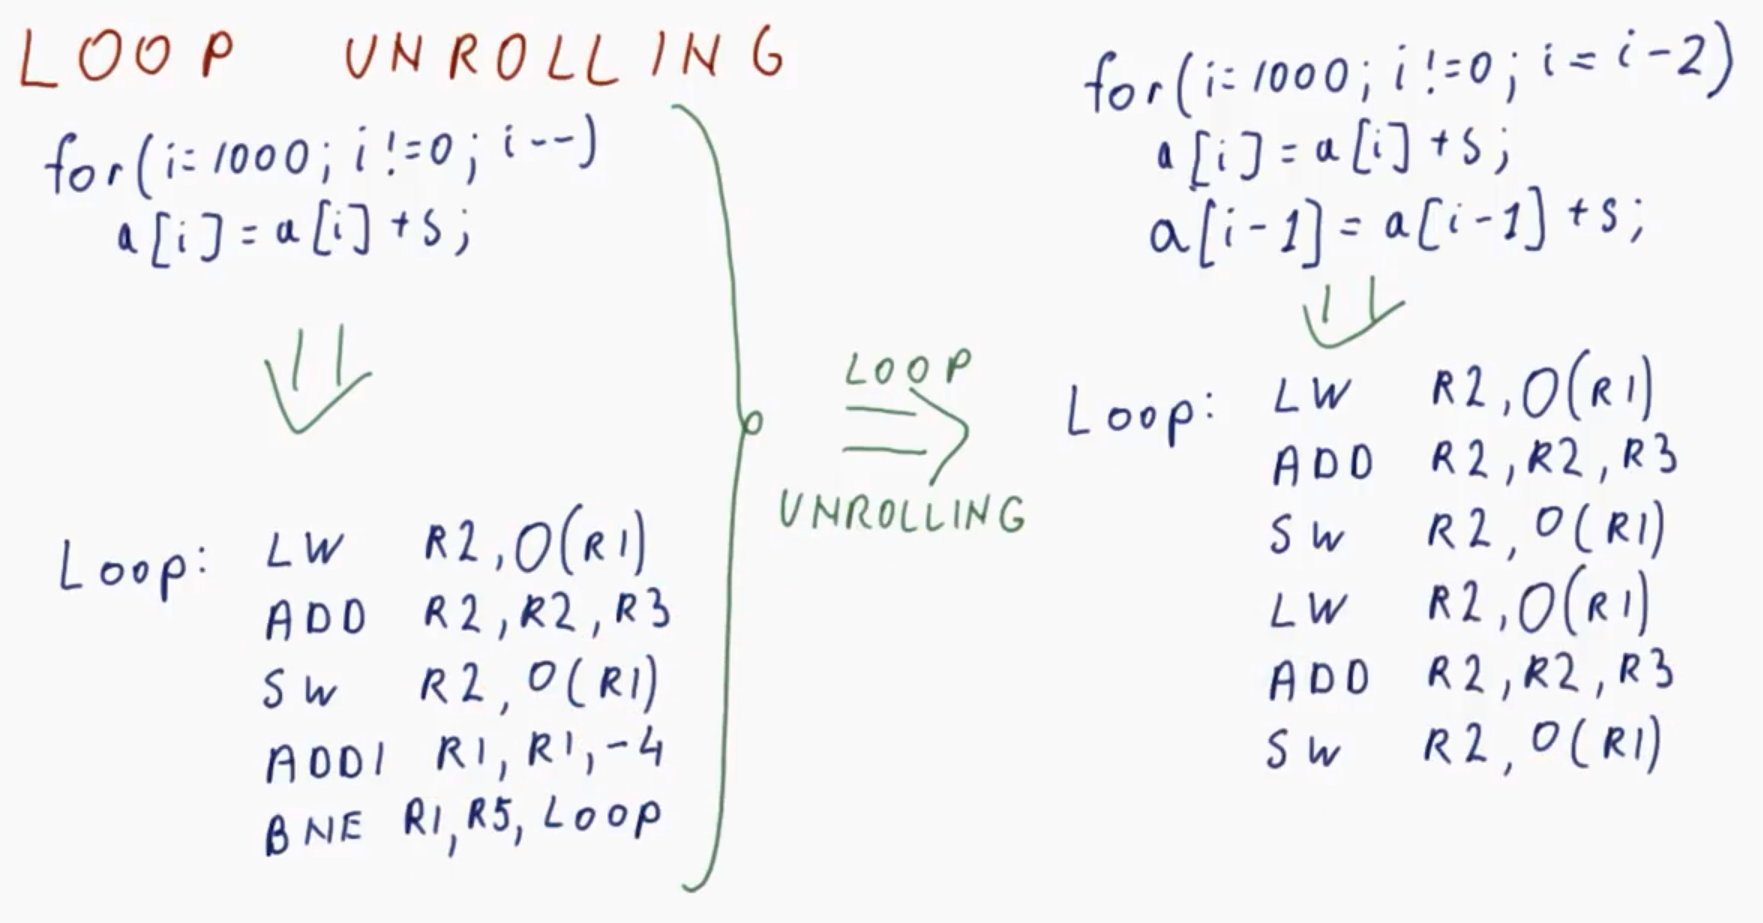 LOOP UNROLLING
for(i=1000; i!=0; i--)
a[i]=a[i]+s;
Loop: LW R2,0(R1)
ADD R2,R2,R3
SW R2,0(R1)
ADDI R1,R1,-4
BNE R1,R5,Loop
LOOP
UNROLLING
for(i=1000; i!=0; i=i-2)
a[i]=a[i]+s;
a[i-1]=a[i-1]+s;
Loop: LW R2,0(R1)
ADD R2,R2,R3
SW R2,0(R1)
LW R2,0(R1)
ADD R2,R2,R3
SW R2,0(R1)